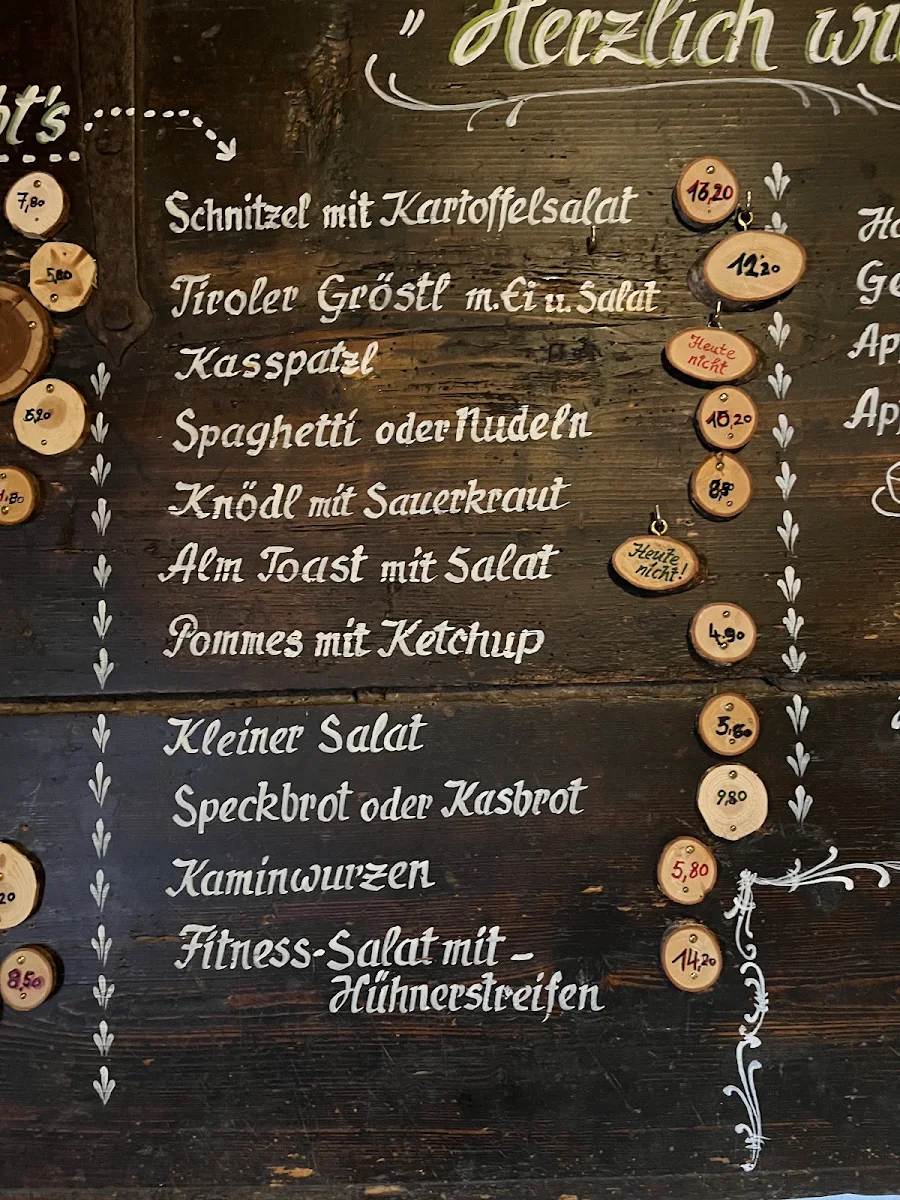 " Herzlich
bt's
7,80
5,80
5,20
8,50
Schnitzel mit Kartoffelsalat 13,20
Tiroler Gröstl m. Ei u. Salat 12,20
Kasspatzl Heute nicht
Spaghetti oder Nudeln 10,20
Knödl mit Sauerkraut
Alm Toast mit Salat Heute nicht!
Pommes mit Ketchup 4,90
Kleiner Salat 5,60
Speckbrot oder Kasbrot 9,80
Kaminwurzen 5,80
Fitness-Salat mit - 14,20
Hühnerstreifen